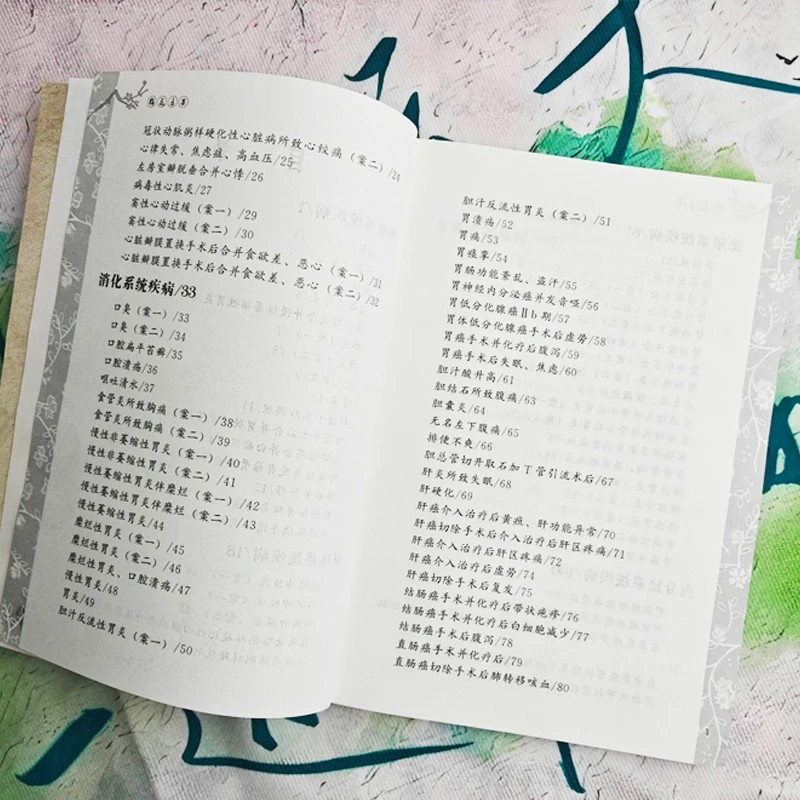 冠状动脉粥样硬化性心脏病所致心绞痛（案二）/24
心律失常、焦虑症、高血压/25
左房室瓣脱垂合并心悸/26
病毒性心肌炎/27
窦性心动过缓（案一）/29
窦性心动过缓（案二）/30
心脏瓣膜置换手术后合并食欲差、恶心（案一）/31
心脏瓣膜置换手术后合并食欲差、恶心（案二）/32
消化系统疾病/33
口臭（案一）/33
口臭（案二）/34
口腔扁平苔癣/35
口腔溃疡/36
呕吐清水/37
食管炎所致胸痛（案一）/38
食管炎所致胸痛（案二）/39
慢性非萎缩性胃炎（案一）/40
慢性非萎缩性胃炎（案二）/41
慢性萎缩性胃炎伴糜烂（案一）/42
慢性萎缩性胃炎伴糜烂（案二）/43
慢性萎缩性胃炎/44
糜烂性胃炎（案一）/45
糜烂性胃炎（案二）/46
糜烂性胃炎、口腔溃疡/47
慢性胃炎/48
胃炎/49
胆汁反流性胃炎（案一）/50
胆汁反流性胃炎（案二）/51
胃溃疡/52
胃痛/53
胃痉挛/54
胃肠功能紊乱、盗汗/55
胃神经内分泌癌并发音哑/56
胃低分化腺癌Ⅱb期/57
胃体低分化腺癌手术后虚劳/58
胃癌手术并化疗后腹泻/59
胃癌手术后失眠、焦虑/60
胆汁酸升高/61
胆结石所致腹痛/63
胆囊炎/64
无名左下腹痛/65
排便不爽/66
胆总管切开取石加丁管引流术后/67
肝炎所致失眠/68
肝硬化/69
肝癌介入治疗后黄疸、肝功能异常/70
肝癌切除手术后介入治疗后肝区疼痛/71
肝癌介入治疗后肝区疼痛/72
肝癌介入治疗后虚劳/74
肝癌切除手术后复发/75
结肠癌手术并化疗后带状疱疹/76
结肠癌手术并化疗后白细胞减少/77
结肠癌手术后腹泻/78
直肠癌手术并化疗后/79
直肠癌切除手术后肺转移咳血/80